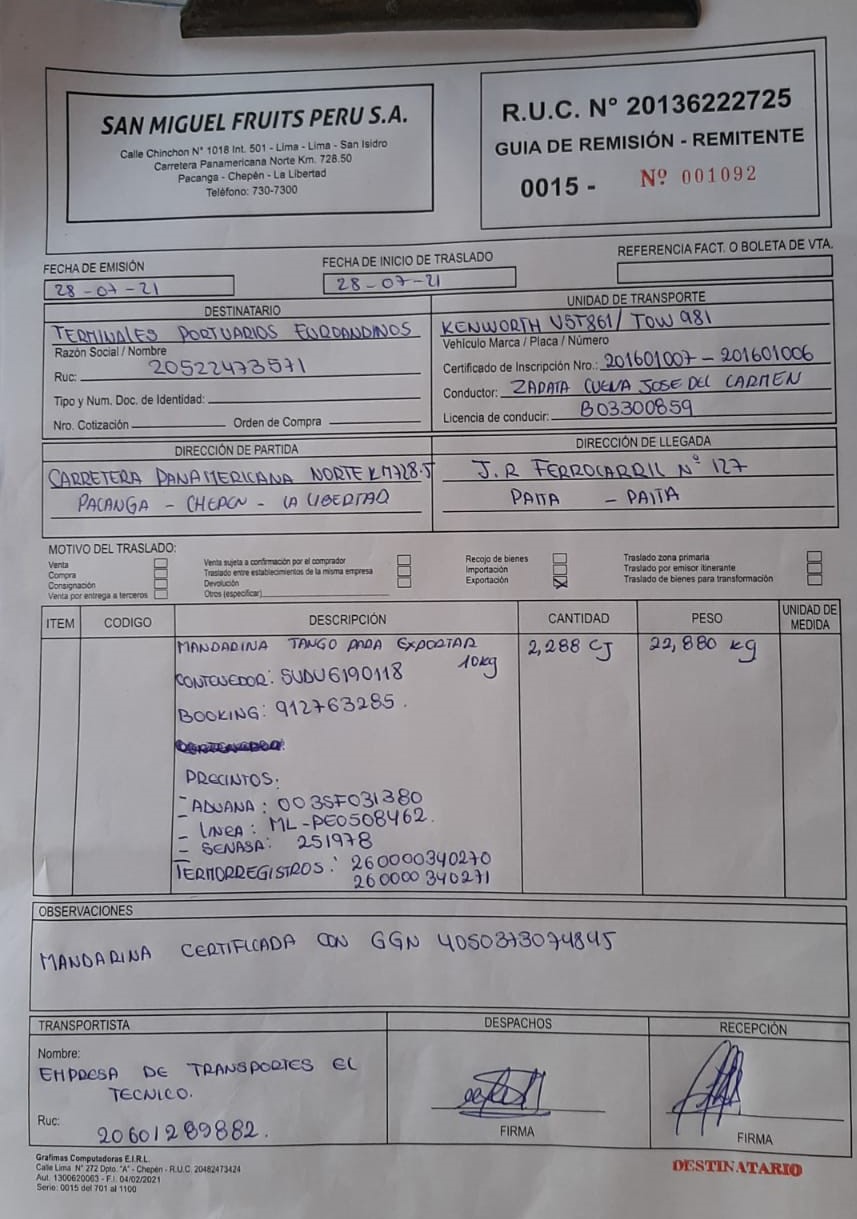 SAN MIGUEL FRUITS PERU S.A.
Calle Chinchon N° 1018 Int. 501 - Lima - Lima - San Isidro
Carretera Panamericana Norte Km. 728.50
Pacanga - Chepén - La Libertad
Teléfono: 730-7300
R.U.C. N° 20136222725
GUIA DE REMISIÓN - REMITENTE
0015 - Nº 001092
FECHA DE EMISIÓN
28-07-21
FECHA DE INICIO DE TRASLADO
28-07-21
REFERENCIA FACT. O BOLETA DE VTA.
DESTINATARIO
TERMINALES PORTUARIOS EUROANDINOS
Razón Social / Nombre
Ruc: 20522473571
Tipo y Num. Doc. de Identidad:
Nro. Cotización Orden de Compra
UNIDAD DE TRANSPORTE
KENWORTH V5T861/ TOW 981
Vehículo Marca / Placa / Número
Certificado de Inscripción Nro.: 201601007 - 201601006
Conductor: ZAPATA CUEVA JOSE DEL CARMEN
Licencia de conducir: B03300859
DIRECCIÓN DE PARTIDA
CARRETERA PANAMERICANA NORTE KM728.5
PACANGA - CHEPEN - LA LIBERTAD
DIRECCIÓN DE LLEGADA
J.R FERROCARRIL Nº 127
PAITA - PAITA
MOTIVO DEL TRASLADO:
Venta
Compra
Consignación
Venta por entrega a terceros
Venta sujeta a confirmación por el comprador
Traslado entre establecimientos de la misma empresa
Devolución
Otros (especificar)
Recojo de bienes
Importación
Exportación X
Traslado zona primaria
Traslado por emisor itinerante
Traslado de bienes para transformación
ITEM CODIGO DESCRIPCIÓN CANTIDAD PESO UNIDAD DE MEDIDA
MANDARINA TANGO PARA EXPORTAR 10kg 2,288 CJ 22,880 kg
CONTENEDOR: SUDU6190118
BOOKING: 912763285.
PRECINTOS:
- ADUANA: 003SF031380
- LINEA: ML-PE0508462.
- SENASA: 251978
TERMORREGISTROS: 260000340270
260000340271
OBSERVACIONES
MANDARINA CERTIFICADA CON GGN 4050373074845
TRANSPORTISTA
Nombre:
EMPRESA DE TRANSPORTES EL
TECNICO.
Ruc:
20601289882.
DESPACHOS
FIRMA
RECEPCIÓN
FIRMA
Grafimas Computadoras E.I.R.L.
Calle Lima N° 272 Dpto. "A" - Chepén - R.U.C. 20482473424
Aut. 1300620063 - F.I. 04/02/2021
Serie: 0015 del 701 al 1100
DESTINATARIO